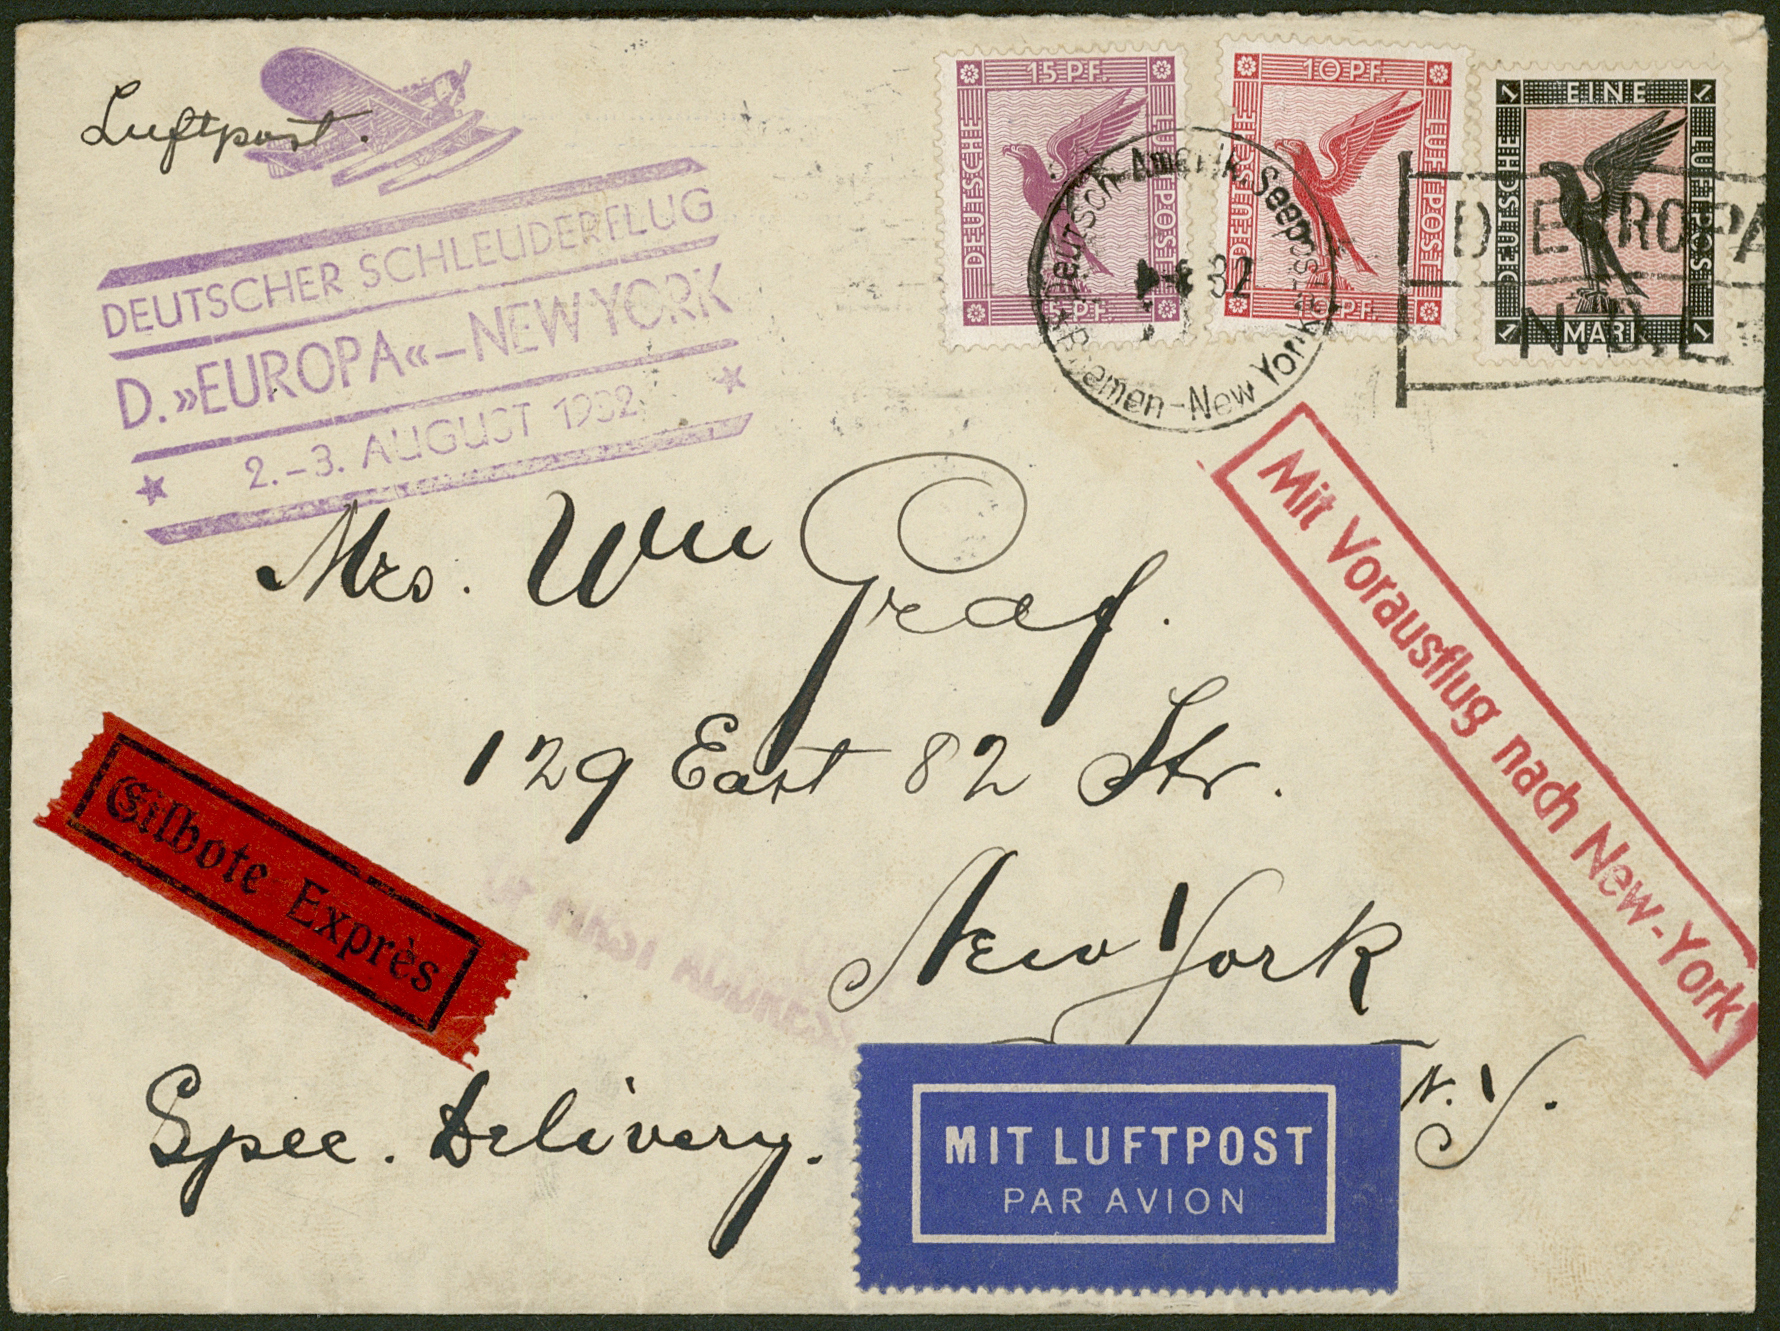 Luftpost.
DEUTSCHER SCHLEUDERFLUG
D. »EUROPA« – NEW YORK
2.–3. AUGUST 1932
15 PF.
DEUTSCHE
LUFTPOST
10 PF.
DEUTSCHE
LUFTPOST
1 EINE 1
DEUTSCHE
LUFTPOST
1 MARK 1
Deutsch-Amerik. Seepost
32
Bremen-New York
D. EUROPA
N.D.L.
Mit Vorausflug nach New-York
Mrs. Wm Graf.
129 East 82 Str.
New York
N.Y.
Eilbote Exprès
Spec. Delivery.
MIT LUFTPOST
PAR AVION